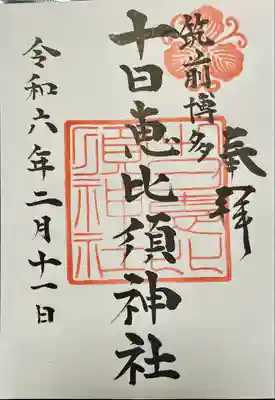 奉拝
筑前博多
十日恵比須神社
令和六年二月十一日